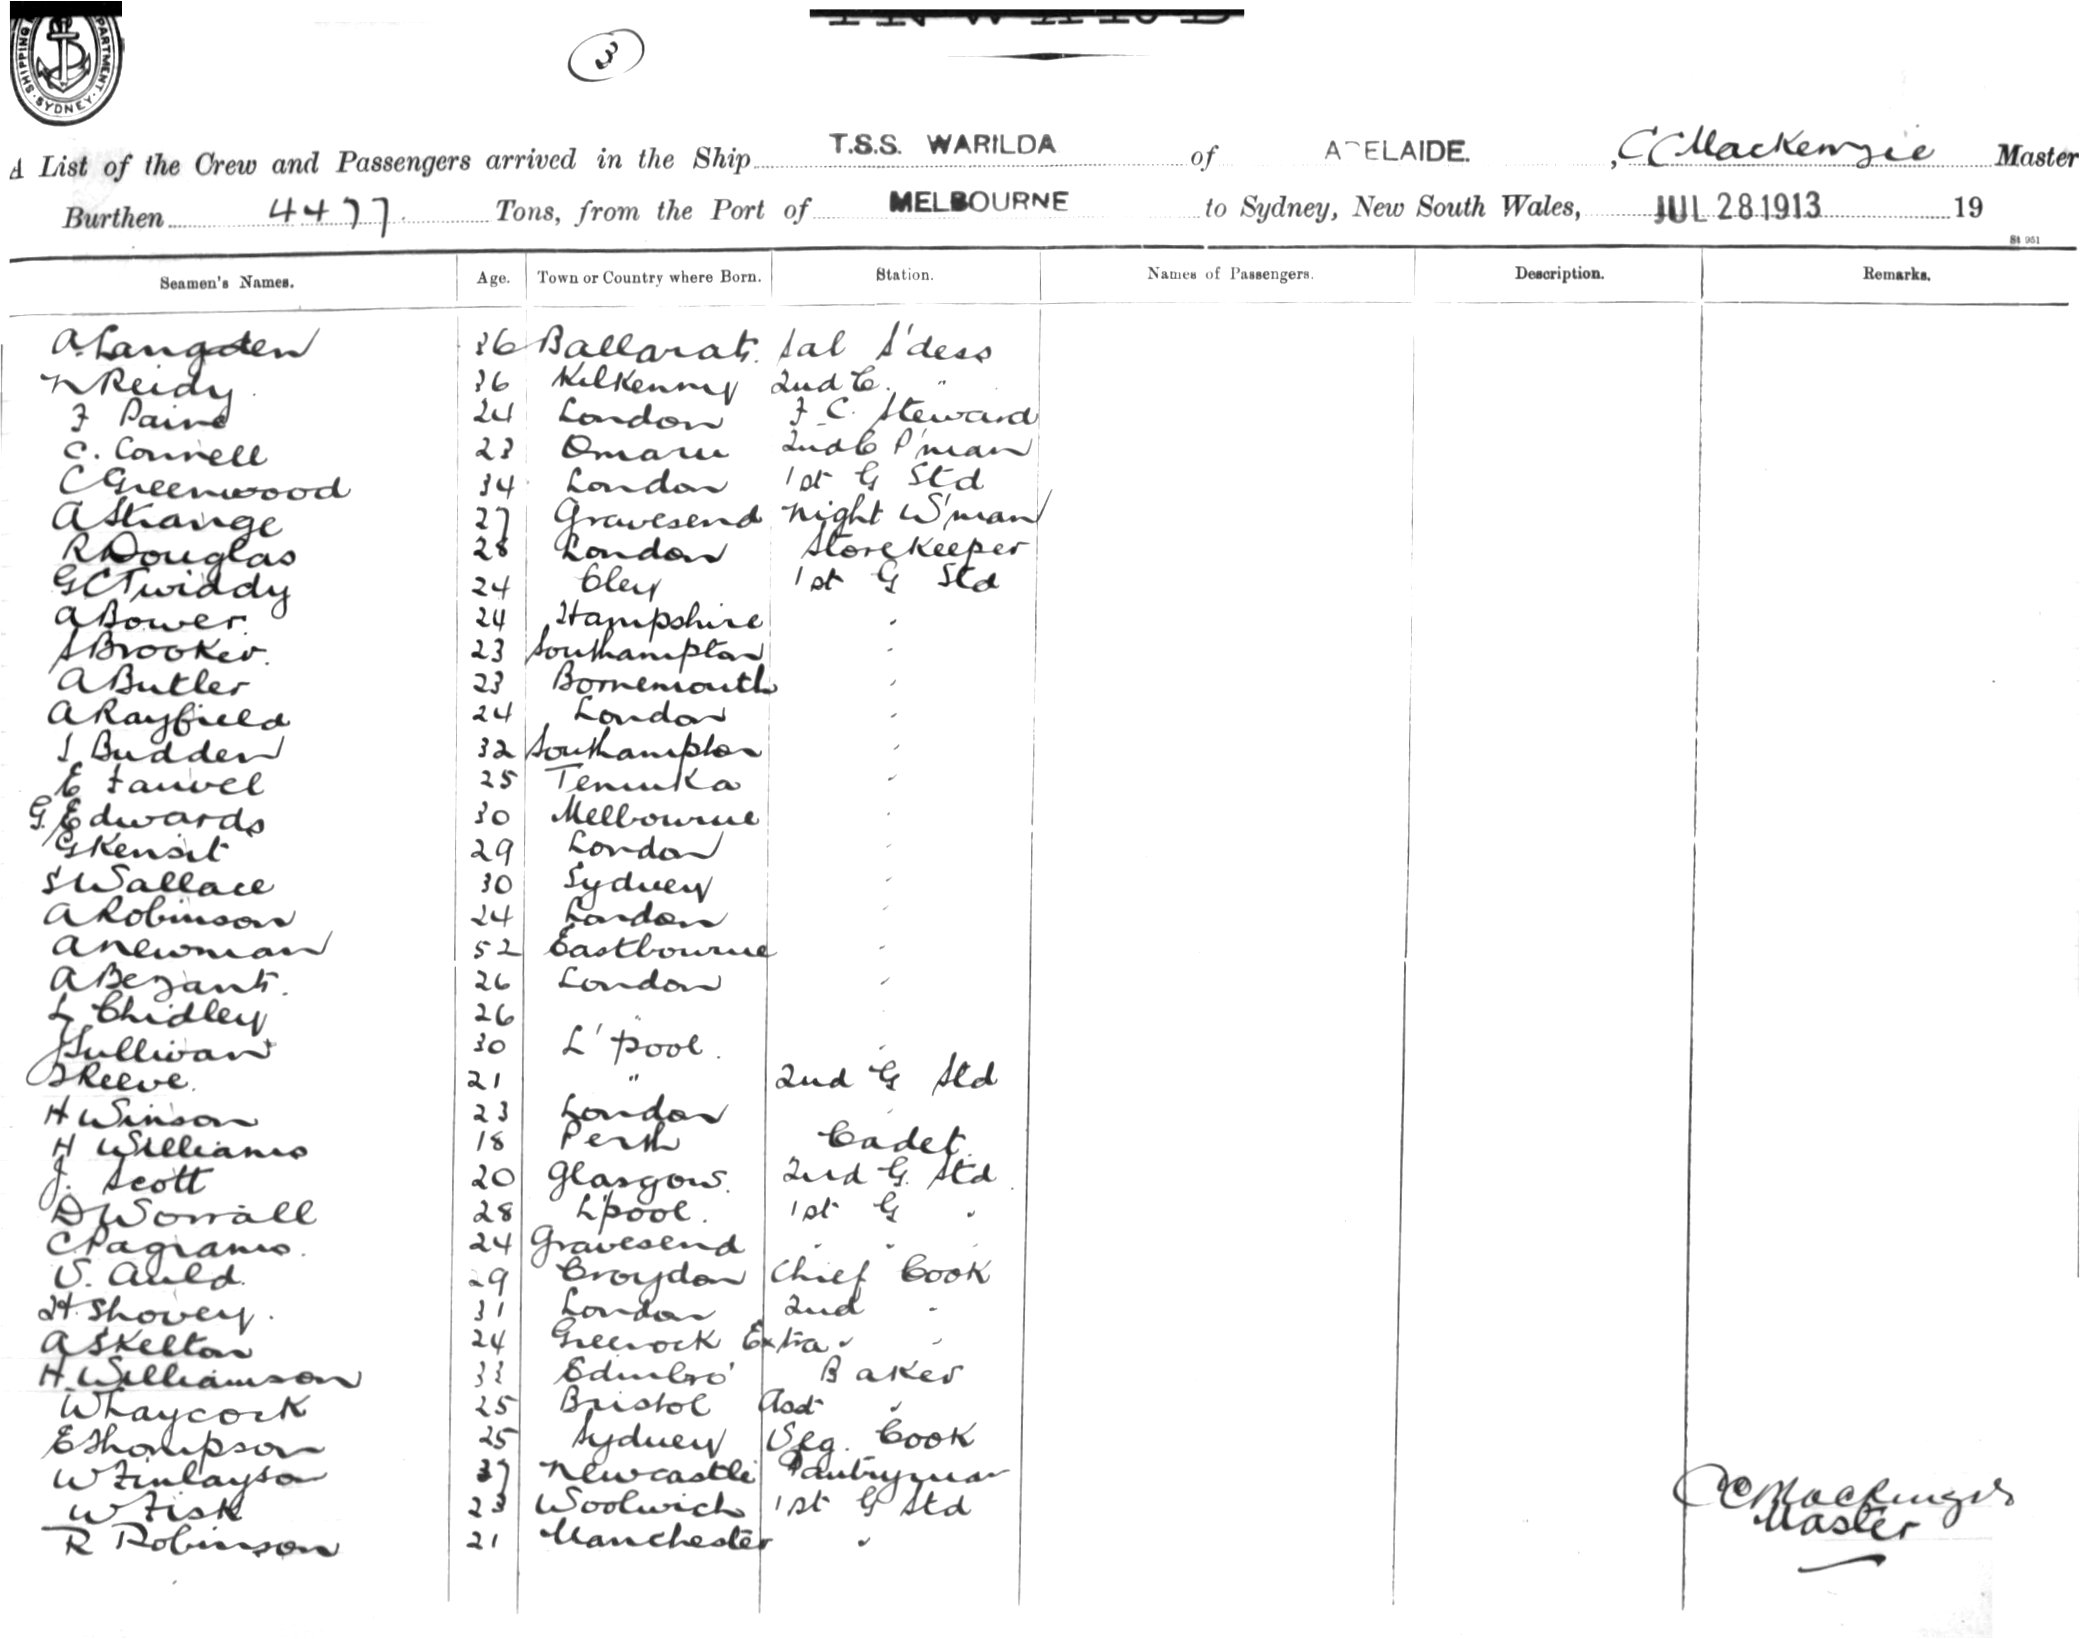 SHIPPING DEPARTMENT SYDNEY
3
INWARD
A List of the Crew and Passengers arrived in the Ship T.S.S. WARILDA of A ELAIDE. , CC Mackenzie Master
Burthen 4477 Tons, from the Port of MELBOURNE to Sydney, New South Wales, JUL 28 1913 19
St 951
Seamen's Names. Age. Town or Country where Born. Station. Names of Passengers. Description. Remarks.
A. Langden 36 Ballarat. Sal S'dess
N Reidy 36 Kilkenny 2nd C. "
F Paine 24 London F C. Steward
C. Connell 23 Omaru 2nd C P'man
C Greenwood 34 London 1st G Std
A Strange 27 Gravesend Night W'man
R Douglas 28 London Storekeeper
G C Twiddy 24 Cley 1st G Std
A Bower 24 Hampshire "
S Brooker 23 Southampton "
A Butler 23 Bornemouth "
A Rayfield 24 London "
S Budden 32 Southampton "
E Fauvel 25 Temuka "
G. Edwards 30 Melbourne "
G Kensit 29 London "
S Wallace 30 Sydney "
A Robinson 24 London "
A Newman 52 Eastbourne "
A Bezant. 26 London "
L Chidley 26 "
J Sullivan 30 L'pool. "
Reeve. 21 " 2nd G Std
H Winson 23 London "
H Williams 18 Perth Cadet.
J. Scott 20 Glasgow. 2nd G. Std
D Worrall 28 L'pool. 1st G "
C Pagrams. 24 Gravesend " " "
Auld. 29 Croydon Chief Cook
H. Shovey. 31 London 2nd "
A Skelton 24 Greenock Extra " "
H. Williamson 33 Edinbro' Baker
W Haycock 25 Bristol Asst "
E Thompson 25 Sydney Veg. Cook
W Finlayson 37 Newcastle Pantryman
W Fisk 23 Woolwich 1st G Std
R Robinson 21 Manchester "
CC Mackenzie
Master